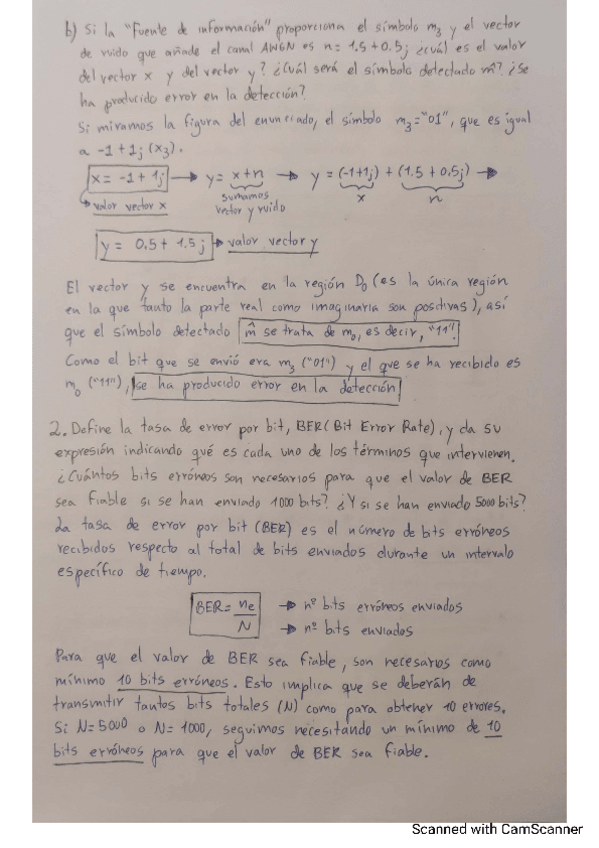 b) Si la "Fuente de información" proporciona el símbolo m3 y el vector
de ruido que añade el canal AWGN es n = 1,5 + 0.5j ¿cuál es el valor
del vector x y del vector y? ¿Cuál será el símbolo detectado m̂? ¿Se
ha producido error en la detección?
Si miramos la figura del enunciado, el símbolo m3="01", que es igual
a -1+1j (x3).
x = -1 + 1j → y = x+n → y = (-1+1j) + (1.5 + 0.5j) →
valor vector x sumamos vector y ruido x n
y = 0.5 + 1.5j → valor vector y
El vector y se encuentra en la región D0 (es la única región
en la que tanto la parte real como imaginaria son positivas), así
que el símbolo detectado m̂ se trata de m0, es decir, "11".
Como el bit que se envió era m3 ("01") y el que se ha recibido es
m0 ("11"), se ha producido error en la detección
2. Define la tasa de error por bit, BER (Bit Error Rate), y da su
expresión indicando qué es cada uno de los términos que intervienen.
¿Cuántos bits erróneos son necesarios para que el valor de BER
sea fiable si se han enviado 1000 bits? ¿Y si se han enviado 5000 bits?
La tasa de error por bit (BER) es el número de bits erróneos
recibidos respecto al total de bits enviados durante un intervalo
específico de tiempo.
BER = ne/N → nº bits erróneos enviados
→ nº bits enviados
Para que el valor de BER sea fiable, son necesarios como
mínimo 10 bits erróneos. Esto implica que se deberán de
transmitir tantos bits totales (N) como para obtener 10 errores.
Si N=5000 o N=1000, seguimos necesitando un mínimo de 10
bits erróneos para que el valor de BER sea fiable.
Scanned with CamScanner